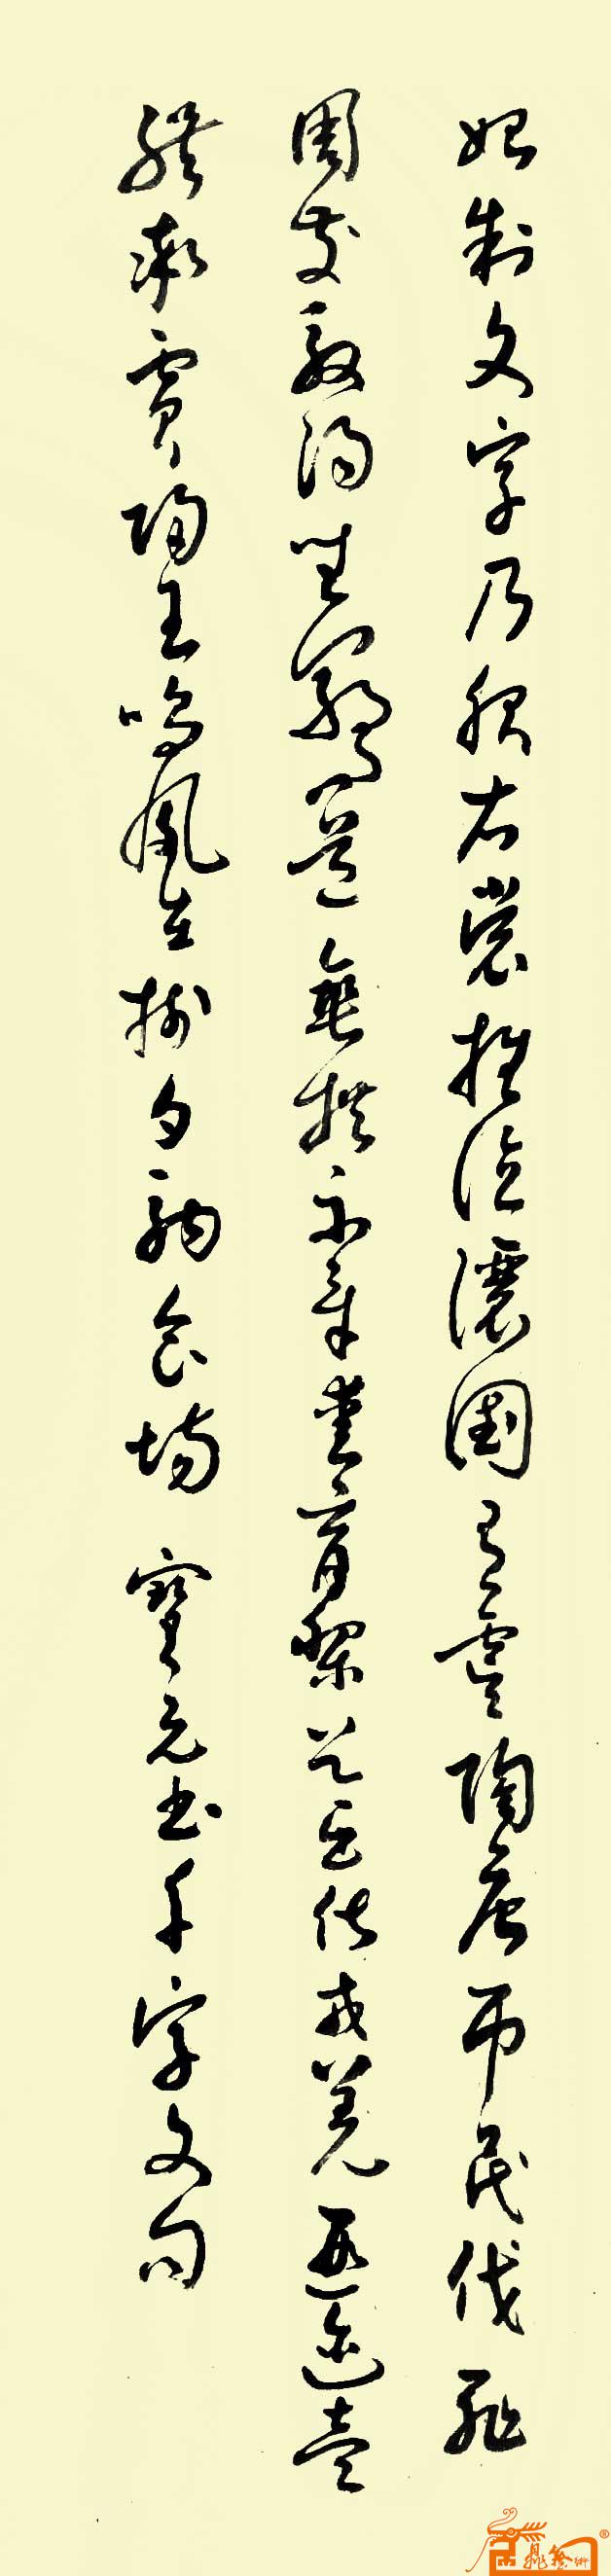 始制文字乃服衣裳推位讓國有虞陶唐吊民伐罪
周發殷湯坐朝問道垂拱平章愛育黎首臣伏戎羌遐邇壹
體率賓歸王鳴鳳在樹白駒食場 寶元書千字文句